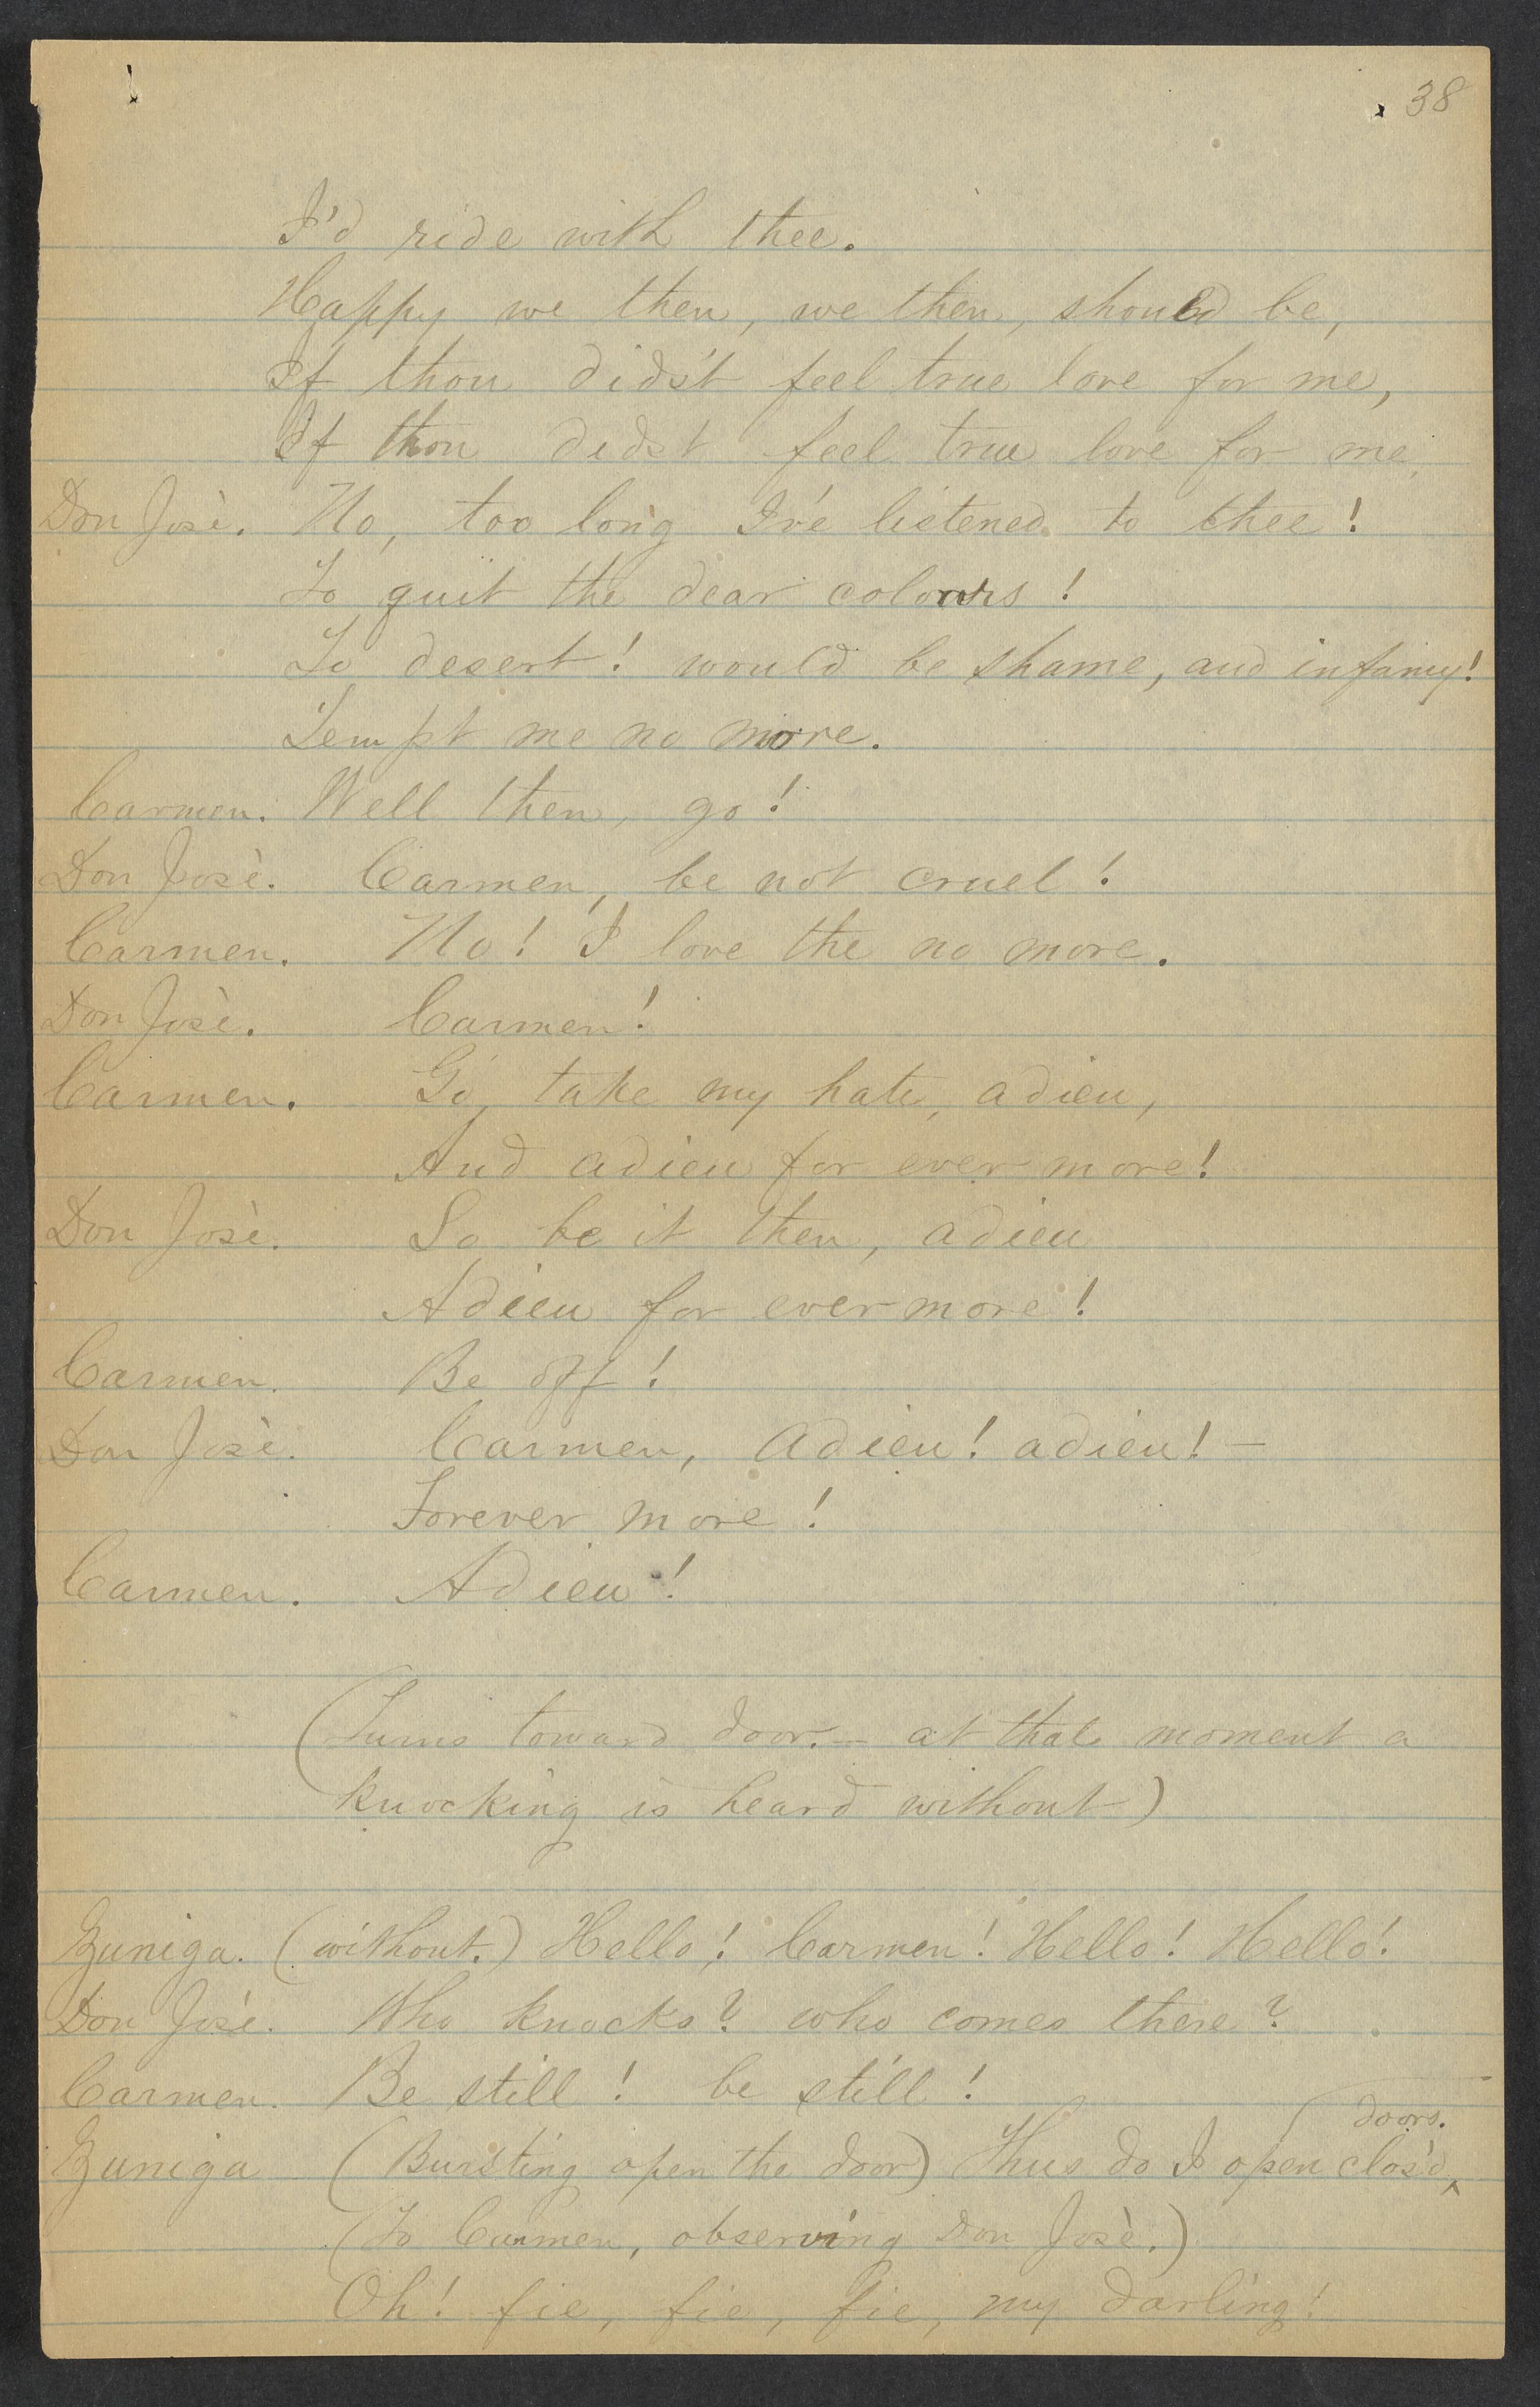 38
I'd ride with thee.
Happy we then, we then, should be,
If thou dids't feel true love for me,
If thou didst feel true love for me,
Don Josè. No, too long I've listened to thee!
To quit the dear colours!
To desert! would be shame, and infamy!
Tempt me no more.
Carmen. Well then, go!
Don Josè. Carmen, be not cruel!
Carmen. No! I love the no more.
Don Josè. Carmen!
Carmen. Go, take my hate, adieu,
And adieu for ever more!
Don Josè. So be it then, adieu
Adieu for ever more!
Carmen. Be off!
Don Josè. Carmen, Adieu! adieu! —
Forever more!
Carmen. Adieu!
(Turns toward door. — at that moment a
knocking is heard without)
Zuniga. (without.) Hello! Carmen! Hello! Hello!
Don Josè. Who knocks? who comes there?
Carmen. Be still! be still!
doors.
Zuniga (Bursting open the door) Thus do I open clos'd ^
(To Carmen, observing Don Josè.)
Oh! fie, fie, fie, my darling!